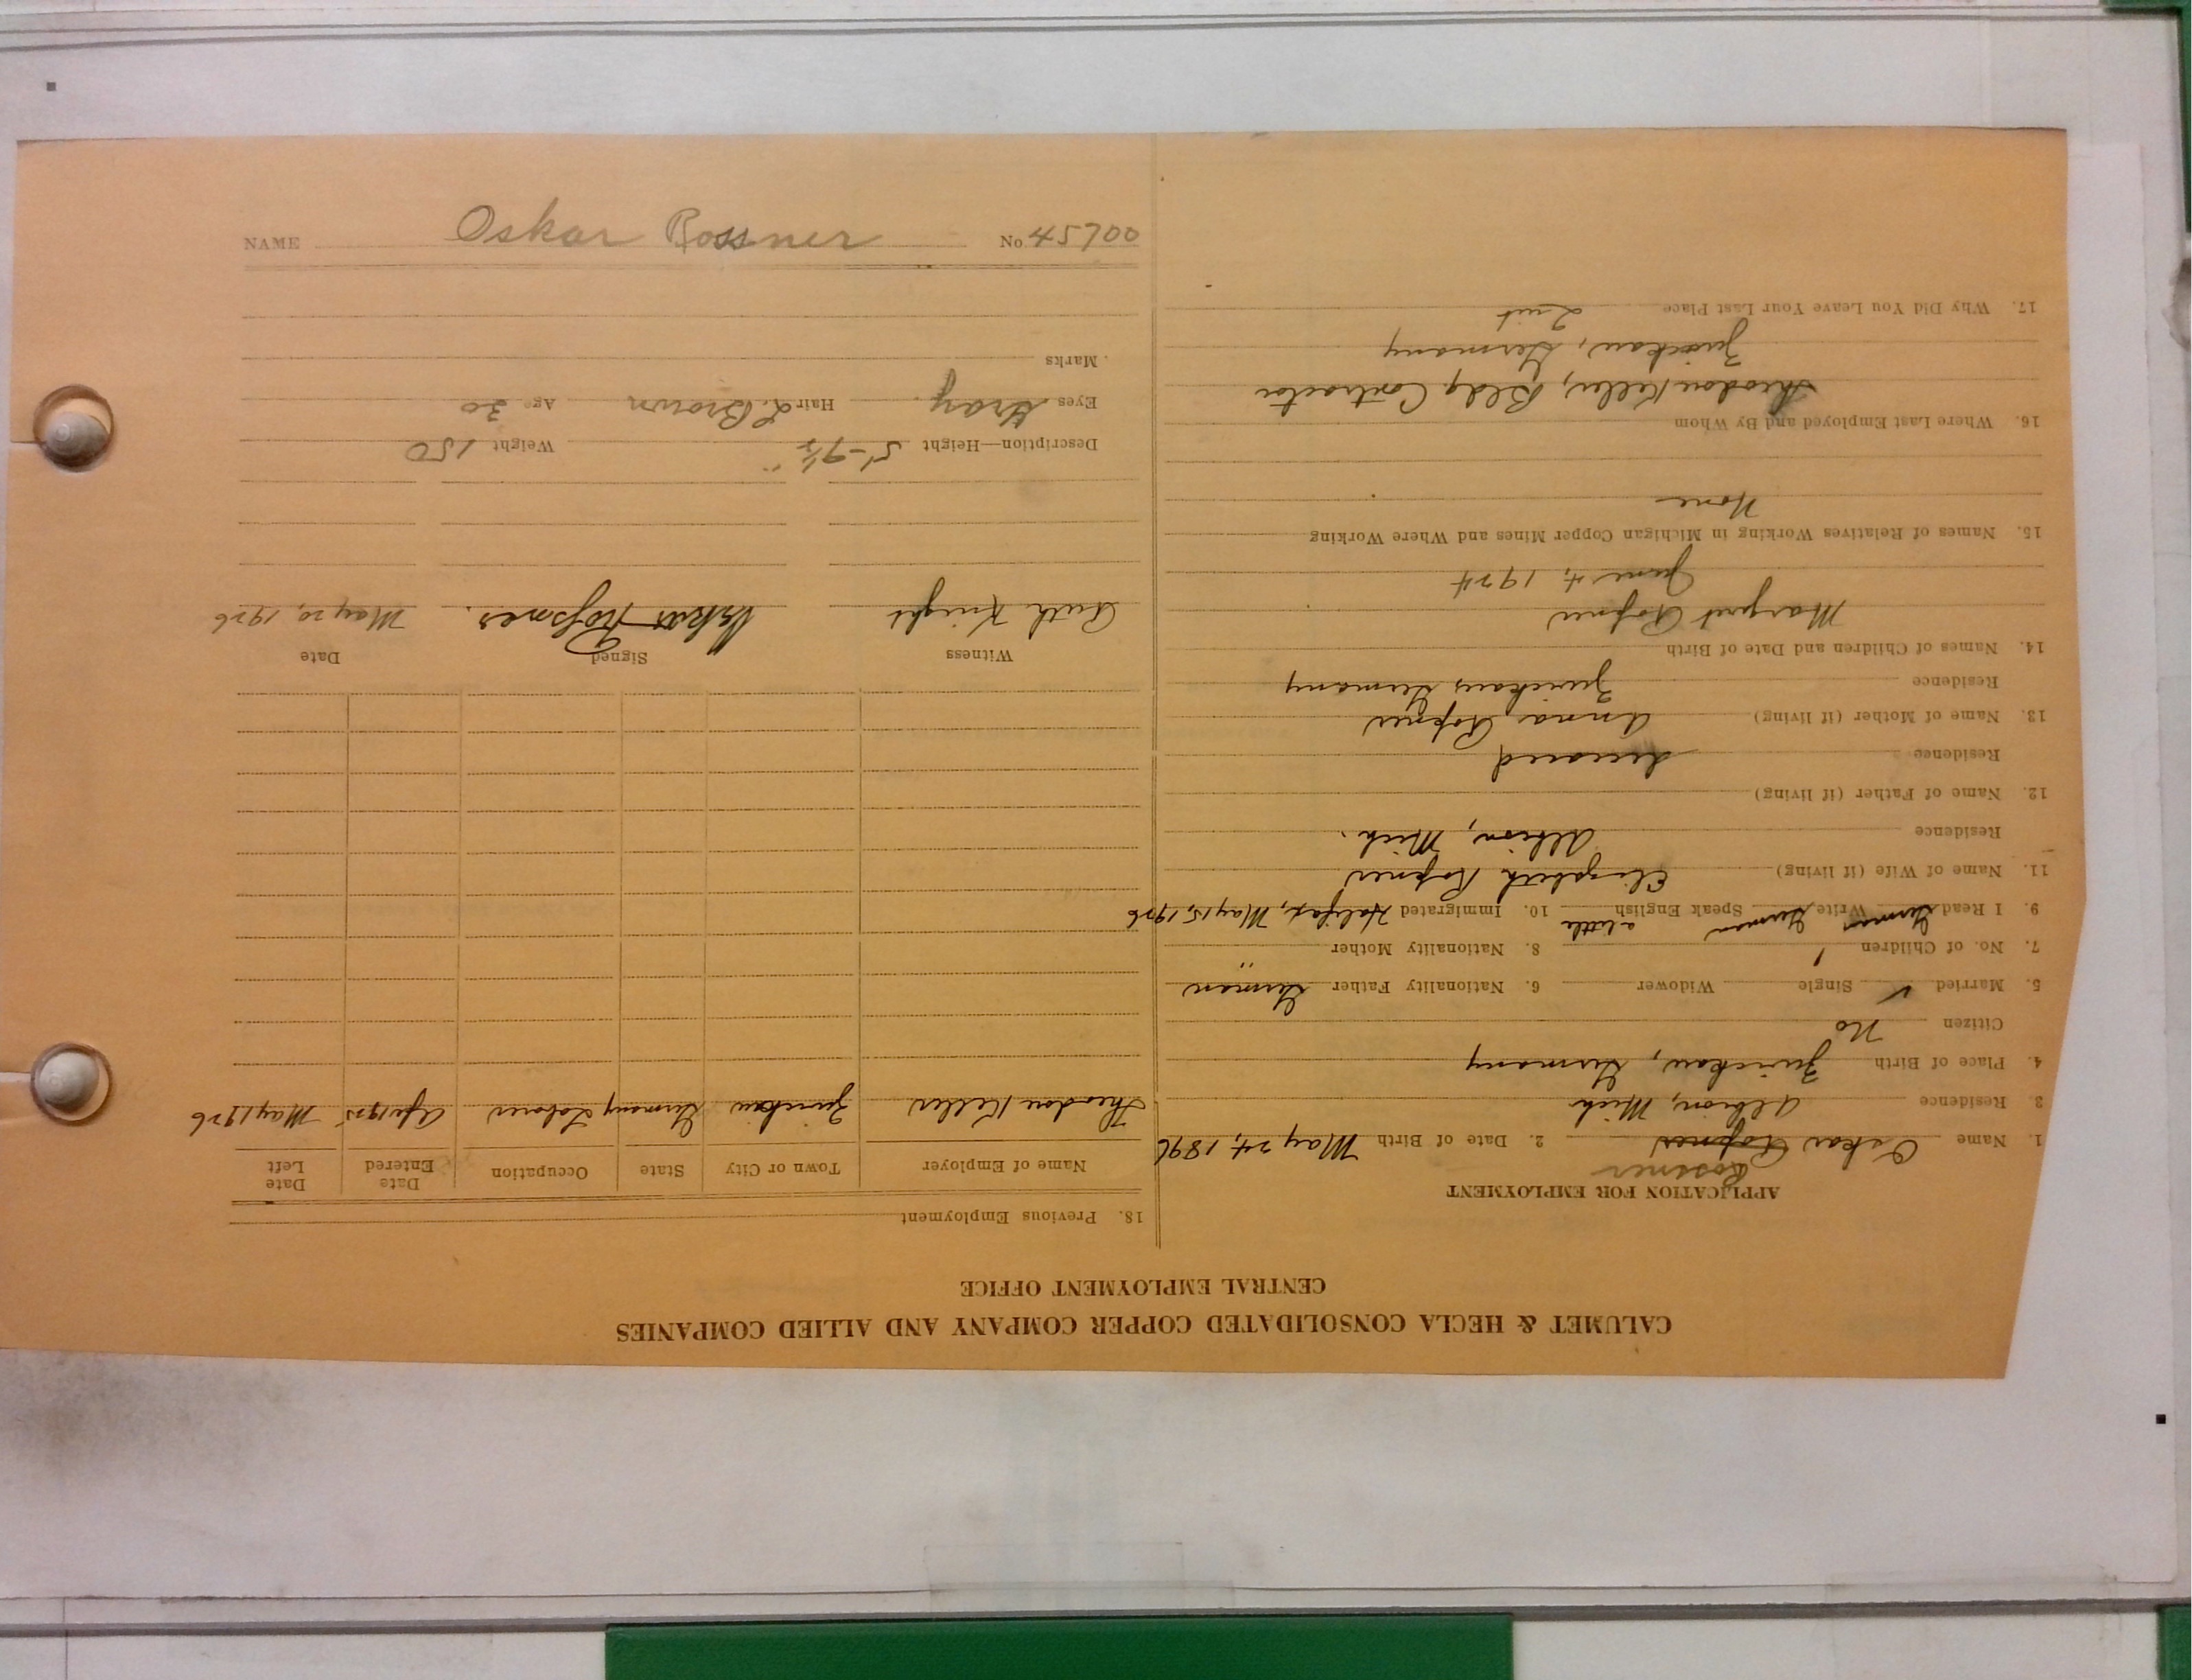 NAME Oskar Rossner No 45700
CALUMET & HECLA CONSOLIDATED COPPER COMPANY AND ALLIED COMPANIES
CENTRAL EMPLOYMENT OFFICE
APPLICATION FOR EMPLOYMENT
Rossner
1. Name Oskar Roßner 2. Date of Birth May 24, 1896
3 Residence Albion, Mich
4. Place of Birth Zwickau, Germany
Citizen No
5. Married ✓ Single Widower 6. Nationality Father German
7. No. of Children 1 8. Nationality Mother "
9. I Read German Write German Speak English a little 10. Immigrated Halifax, May 15, 1926
11. Name of Wife (if living) Elizabeth Roßner
Residence Albion, Mich.
12. Name of Father (if living)
Residence deceased
13. Name of Mother (if living) Anna Roßner
Residence Zwickau Germany
14. Names of Children and Date of Birth
Margret Roßner
June 4, 1924
15. Names of Relatives Working in Michigan Copper Mines and Where Working
None
16. Where Last Employed and By Whom
Theodore Keller, Bldg Contractor
Zwickau, Germany
17. Why Did You Leave Your Last Place Quit
18. Previous Employment
Name of Employer Town or City State Occupation Date Entered Date Left
Theodore Keller Zwickau Germany Laborer Apr 1925 May 1926
Witness Signed Date
Ruth Knight Oskar Roßner. May 20, 1926
Description—Height 5'-9½" Weight 150
Eyes Gray. Hair L. Brown Age 30
Marks